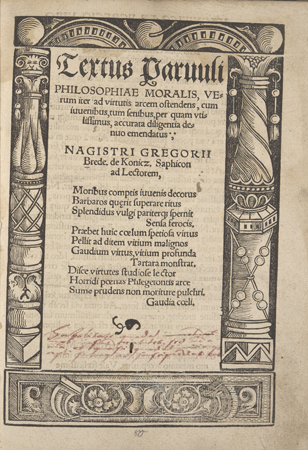 Textus Paruuli
PHILOSOPHIAE MORALIS, VE-
rum iter ad virtutis arcem ostendens, tum
iuuenibus, tum senibus, per quam vti-
lissimus, accurata diligentia de-
nuo emendatus
NAGISTRI GREGORII
Brede. de Konicz, Saphicon
ad Lectorem,
Moribus comptis iuuenis decorus
Barbaros quęris superare ritus
Splendidus vulgi pariterq; spernit
Sensa ferocis,
Præbet huic cœlum speciosa virtus
Pellit ad ditem vitium malignos
Gaudium virtus, vitium profunda
Tartara monstrat,
Disce virtutes studiose lector
Horridi pœnas Phlegetontis arce
Sume prudens non moriture pulchri,
Gaudia cœli,